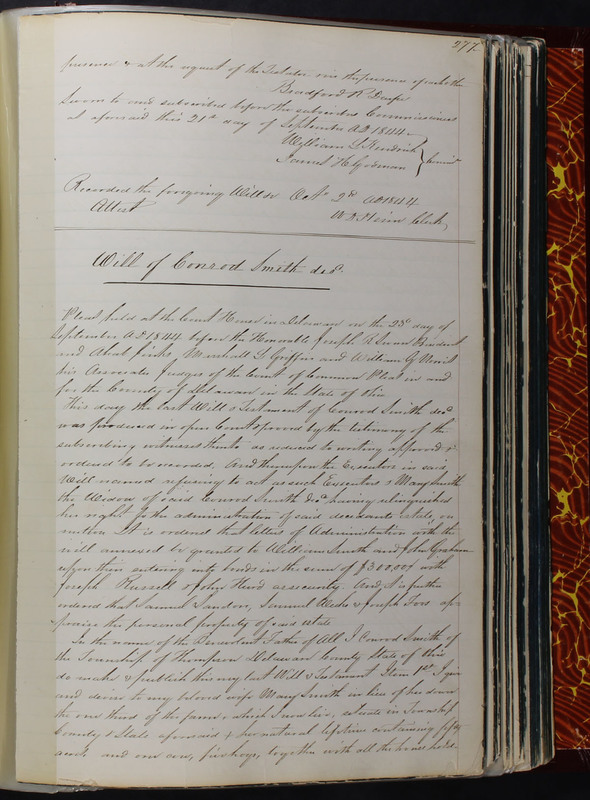 277
presence & at the request of the Testator in the presence of each other
Bradford R Durfee
Sworn to and subscribed before the subscribed Commissioners
at aforesaid this 21st day of September AD 1844
William L Kendrick
James H Godman
Recorded the foregoing Will on Octr 2nd AD 1844
Attest
Clerk
Will of Conrod Smith decd.
Pleas, held at the Court House in Delaware on the 23d day of
September AD 1844 before the Honorable Joseph R Swan President
and Ahab Jinks, Marshall L Griffin and William G Norris
his Associates Judges of the Court of Common Pleas in and
for the County of Delaware in the State of Ohio
This day the last Will & Testament of Conrod Smith decd
was produced in open Court & proved by the testimony of the
subscribing witnesses thereto as reduced to writing approved &
ordered to be recorded. And thereupon the Executors in said
Will named refusing to act as such Executors & Mary Smith
the Widow of said Conrod Smith decd having relinquished
her right to the administration of said decedants estate, on
motion It is ordered that letters of Administration with the
will annexed be granted to William Smith and John Graham
upon their entering into bonds in the sum of $3000.00 with
Joseph Russell & John Hurd as security. And, it is further
ordered that Samuel Landon, Samuel Weeks & Joseph Foos ap-
praise the personal property of said estate
In the name of the Benevolent Father of All I Conrod Smith of
the Township of Thompson Delaware County State of Ohio
do make & publish this my last Will & Testament Item 1st I give
and devise to my beloved wife Mary Smith in lieu of her dower
the one third of the farm on which I now live, situate in Township
County & State aforesaid & her natural lifetime containing fifty
acres and one cow, five hogs, together with all the house hold